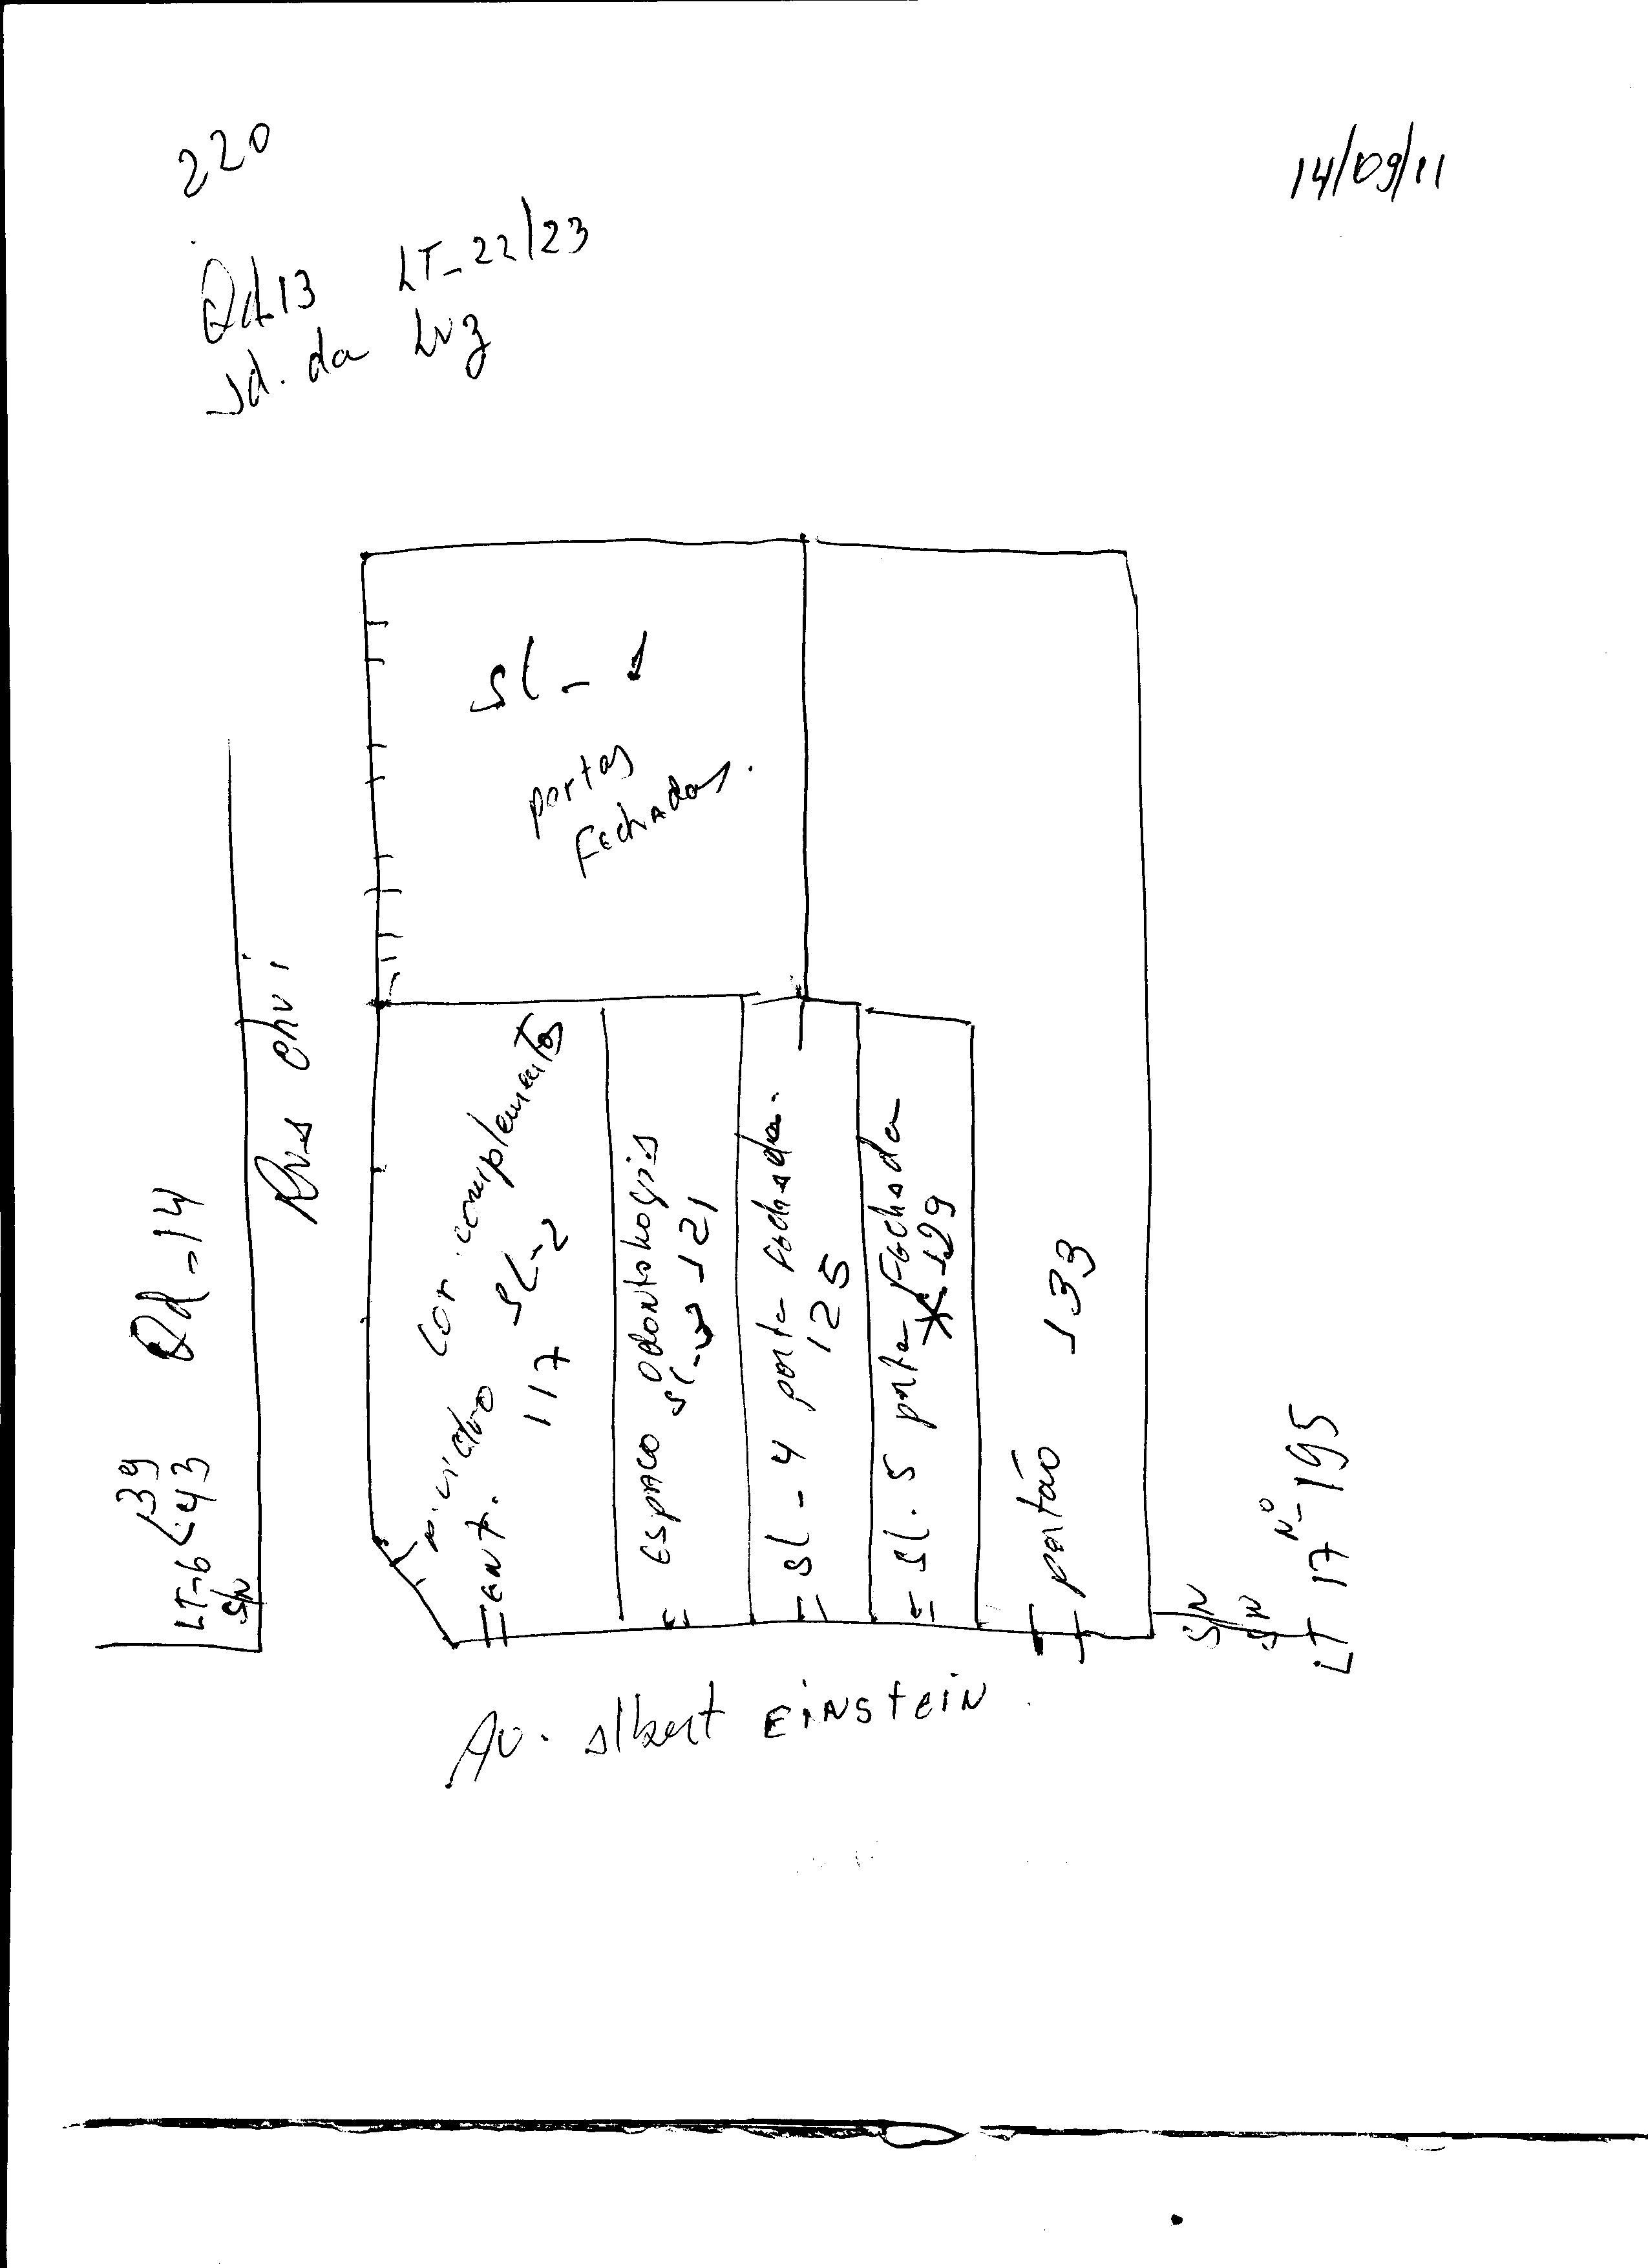 220
14/09/11
Qd.13 LT-22/23
Jd. da Luz
SL-1
portas
Fechadas.
Rua Chuí
Qd-14
LT-6 39
43
S/N
Cor. complementos
SL-2
ent. 117
ESPAÇO Odontologia
SL-3 121
SL-4 porta Fechada.
125
SL.5 porta Fechada
129
portão 133
SN
SN
LT 17 Nº 195
Av. Albert EiNSteiN